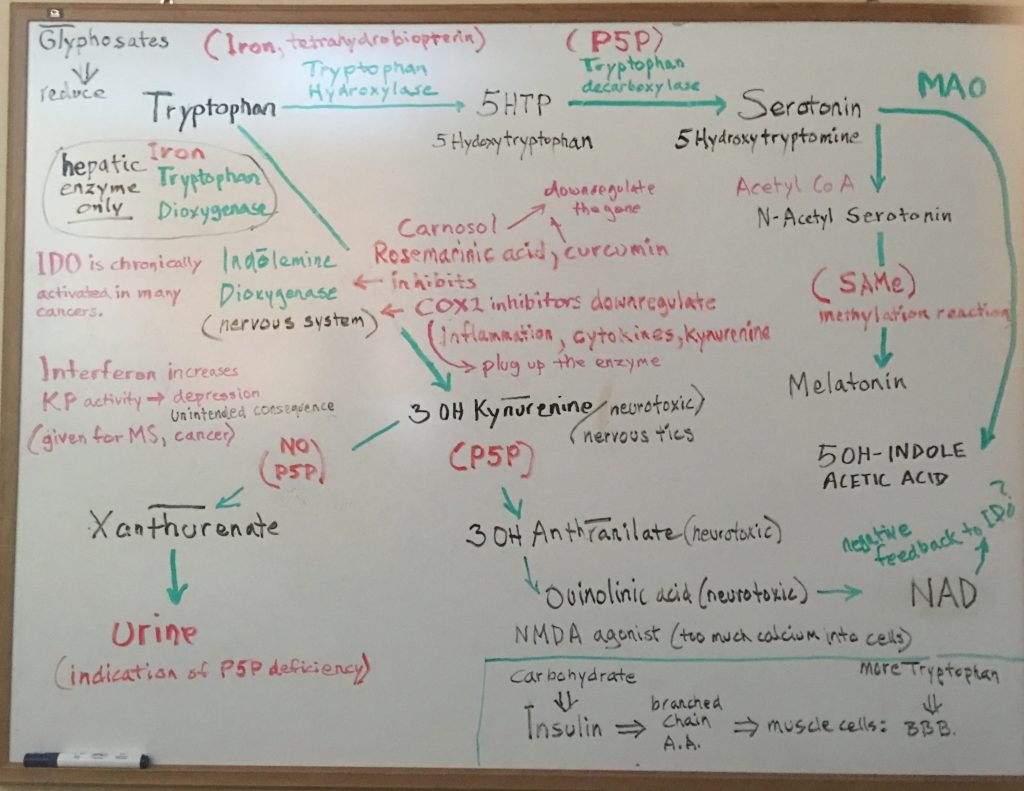 Glyphosates
reduce
(Iron, tetrahydrobiopterin)
(P5P)
Tryptophan
Hydroxylase
Tryptophan
decarboxylase
MAO
Tryptophan
5HTP
Serotonin
5Hydoxytryptophan
5Hydroxytryptomine
hepatic
enzyme
only
Iron
Tryptophan
Dioxygenase
Acetyl CoA
N-Acetyl Serotonin
downregulate
the gene
Carnosol
Rosemarinic acid, curcumin
inhibits
COX2 inhibitors downregulate
(inflammation, cytokines, kynurenine
plug up the enzyme
IDO is chronically
activated in many
cancers.
Indolemine
Dioxygenase
(nervous system)
(SAMe)
methylation reaction
Melatonin
Interferon increases
KP activity → depression
unintended consequence
(given for MS, cancer)
3 OH Kynurenine (neurotoxic)
(nervous tics
NO
(P5P)
(P5P)
5OH-INDOLE
ACETIC ACID
Xanthurenate
3 OH Anthranilate (neurotoxic)
negative
feedback to IDO
?
Quinolinic acid (neurotoxic) → NAD
NMDA agonist (too much calcium into cells)
Urine
(indication of P5P deficiency)
Carbohydrate
more Tryptophan
Insulin ⇒ branched
chain
A.A.
⇒ muscle cells: BBB.